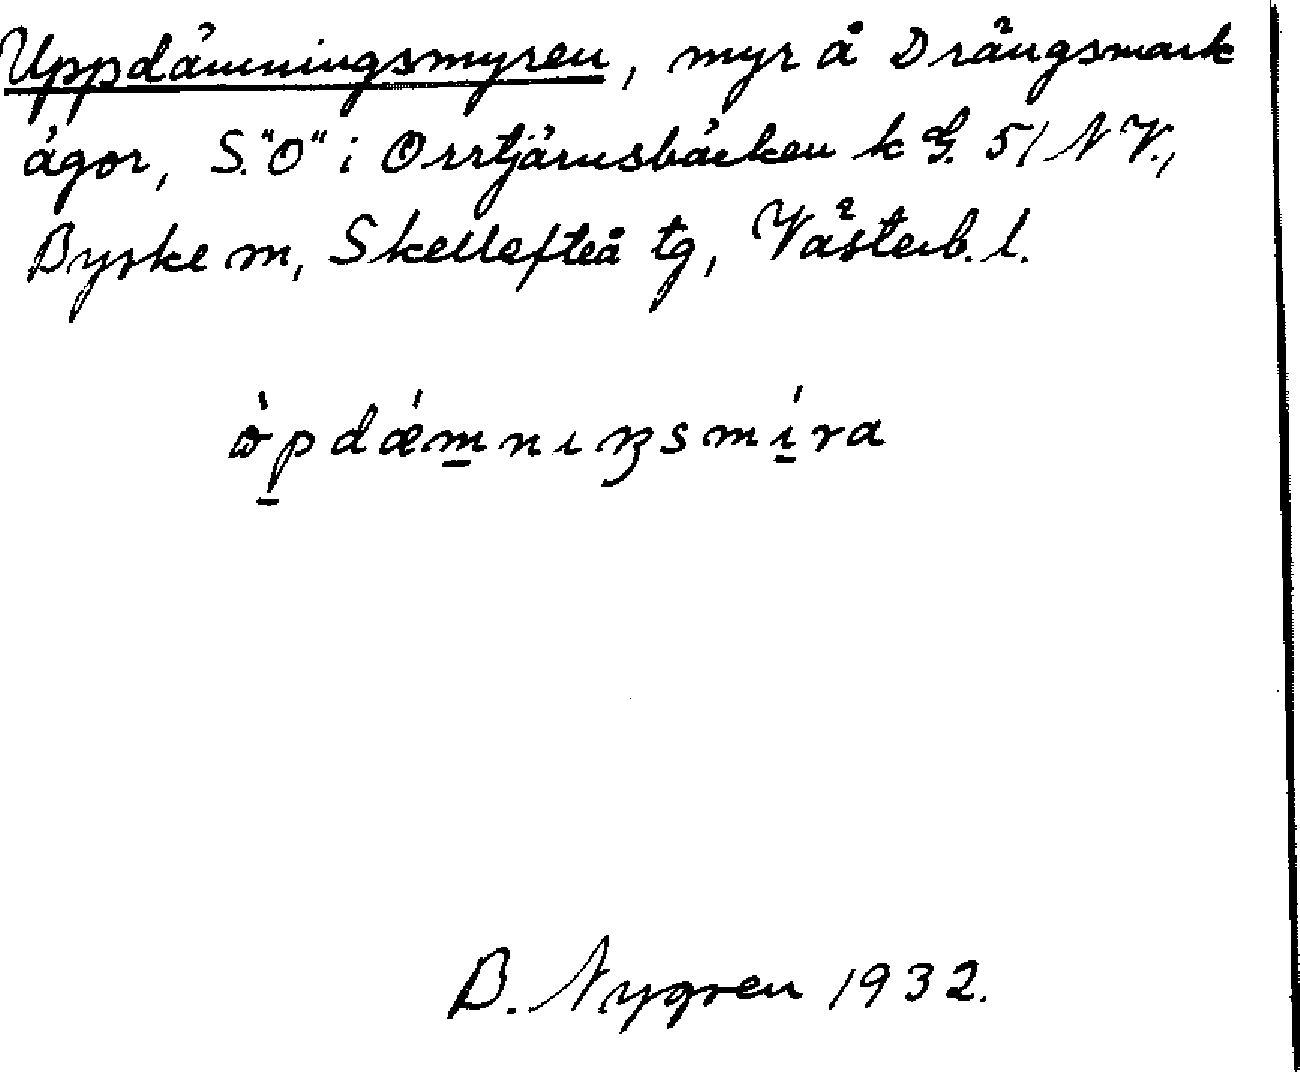 Uppdämningsmyren, myr å Drängsmark
ägor, S. "O" i Orrtjärnsbäcken k G. 51 NV.,
Byske sn, Skellefteå tg, Västerb. l.
B. Nygren 1932.